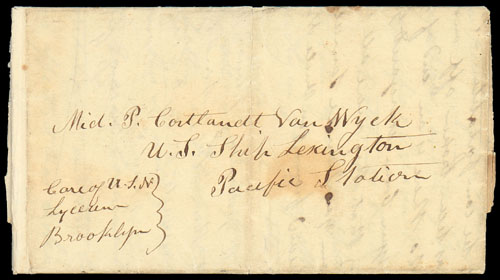 Mid. P. Cortlandt Van Wyck
U. S. Ship Lexington
Pacific Station
Care of U. S. N.
Lyceum
Brooklyn